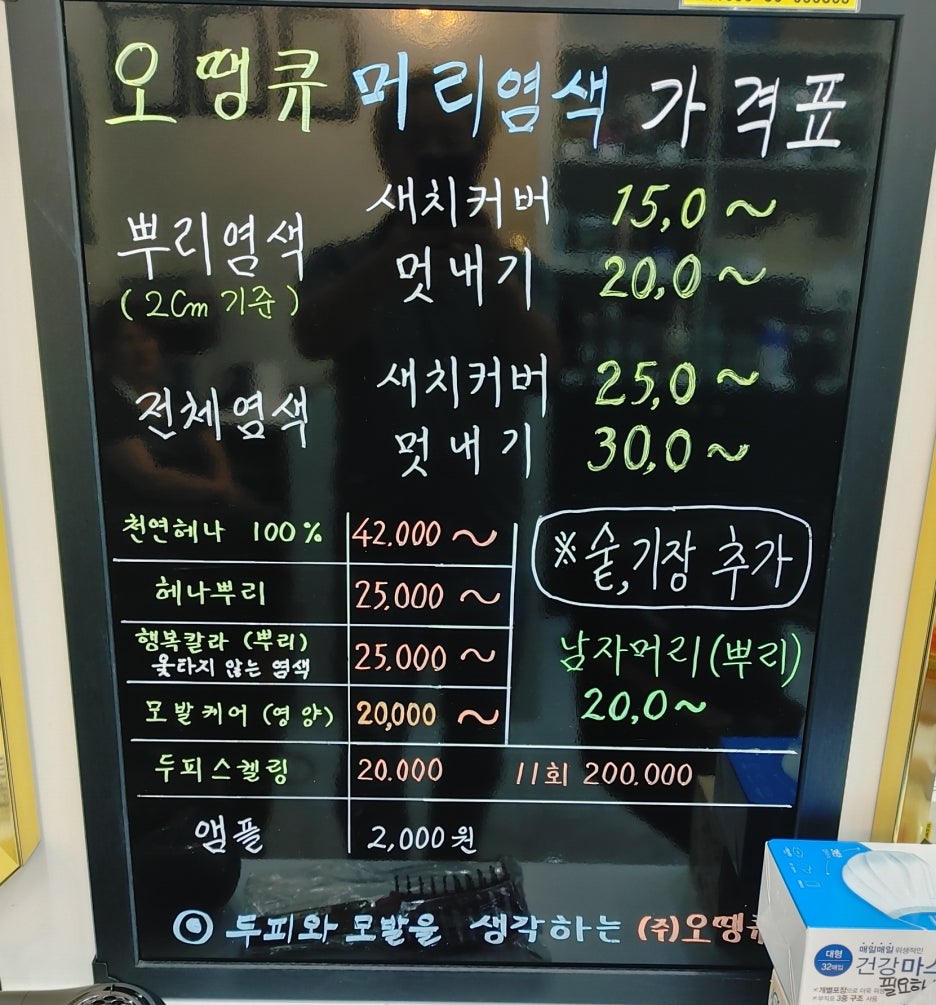 오땡큐 머리염색 가격표
뿌리염색 새치커버 15,0~
(2Cm 기준) 멋내기 20,0~
전체염색 새치커버 25,0~
멋내기 30,0~
천연헤나 100% 42.000~
헤나뿌리 25,000~
행복칼라 (뿌리)
옻타지 않는 염색 25,000~
모발케어 (영양) 20,000~
※숱,기장 추가
남자머리(뿌리)
20,0~
두피스켈링 20.000 11회 200.000
앰플 2,000원
◎ 두피와 모발을 생각하는 (주)오땡큐
대형
32매입
매일매일 위생적인
건강마스
필요하